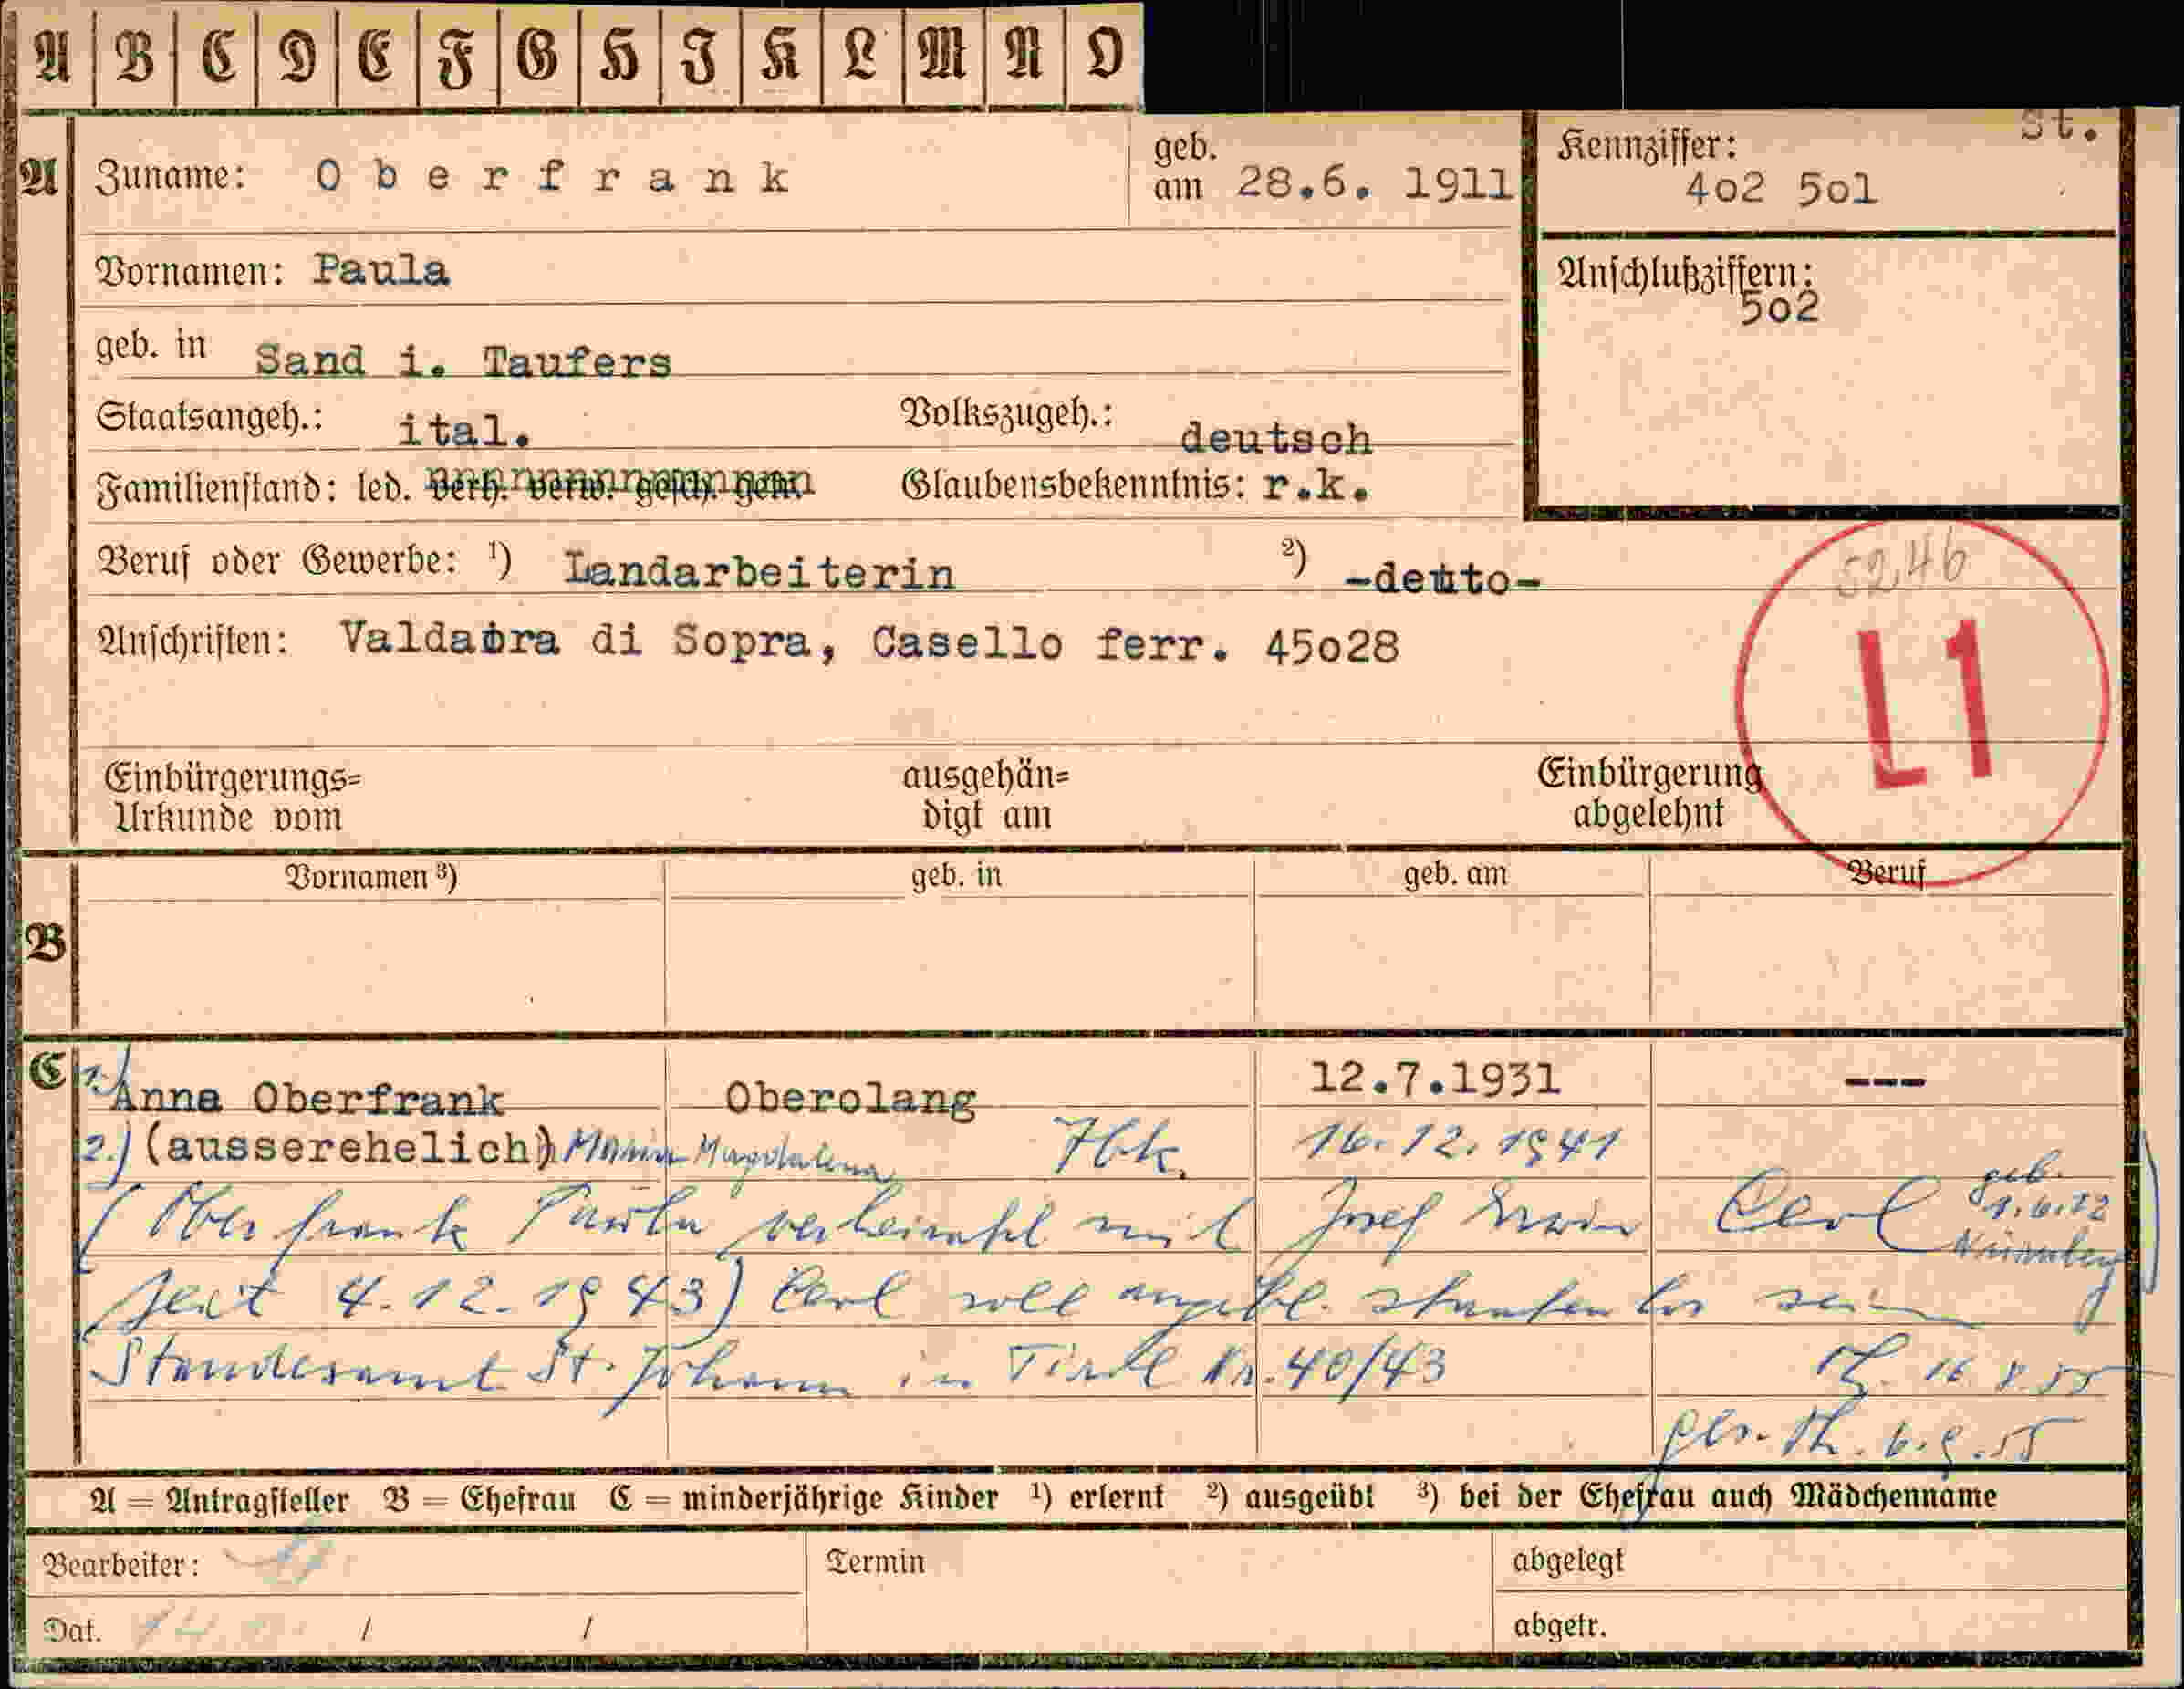 A B C D E F G H I K L M N O
St.
A Zuname: Oberfrank geb. am 28.6. 1911 Kennziffer: 402 501
Vornamen: Paula Anschlußziffern: 502
geb. in Sand i. Taufers
Staatsangeh.: ital. Volkszugeh.: deutsch
Familienstand: led. verh. verw. gesch. getr. Glaubensbekenntnis: r.k.
Beruf oder Gewerbe: ¹) Landarbeiterin ²) -detto-
5246
Anschriften: Valdaora di Sopra, Casello ferr. 45028
L1
Einbürgerungs= ausgehän= Einbürgerung
Urkunde vom digt am abgelehnt
Vornamen ³) geb. in geb. am Beruf
B
C 1.) Anna Oberfrank Oberolang 12.7.1931 ---
2.) (ausserehelich) Maria Magdalena 16.12.1941
(Oberfrank Paula verheiratet mit Josef Erwin geb.
Nürnberg
seit 4.12.1943) soll angebl. staatenlos sein
Standesamt St. Johann in Tirol Nr. 40/43 16.8.55
6.9.55
A = Antragsteller B = Ehefrau C = minderjährige Kinder ¹) erlernt ²) ausgeübt ³) bei der Ehefrau auch Mädchenname
Bearbeiter: Termin abgelegt
Dat. / / abgetr.